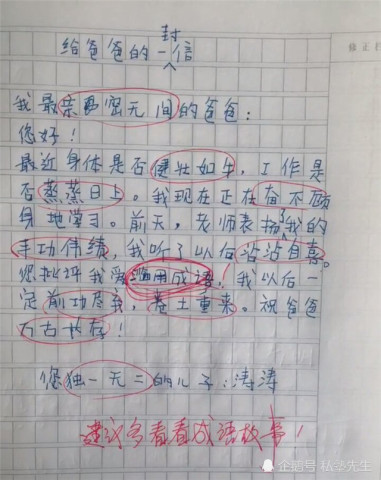 给爸爸的一封信
我最亲密无间的爸爸：
您好！
最近身体是否健壮如牛，工作是
否蒸蒸日上。我现在正在奋不顾
身地学习。前天，老师表扬了我的
丰功伟绩，我听了以后沾沾自喜。
您批评我爱滥用成语，我以后一
定前功尽弃，卷土重来。祝爸爸
万古长存！
您独一无二的儿子：涛涛
建议多看看成语故事！
企鹅号 私塾先生